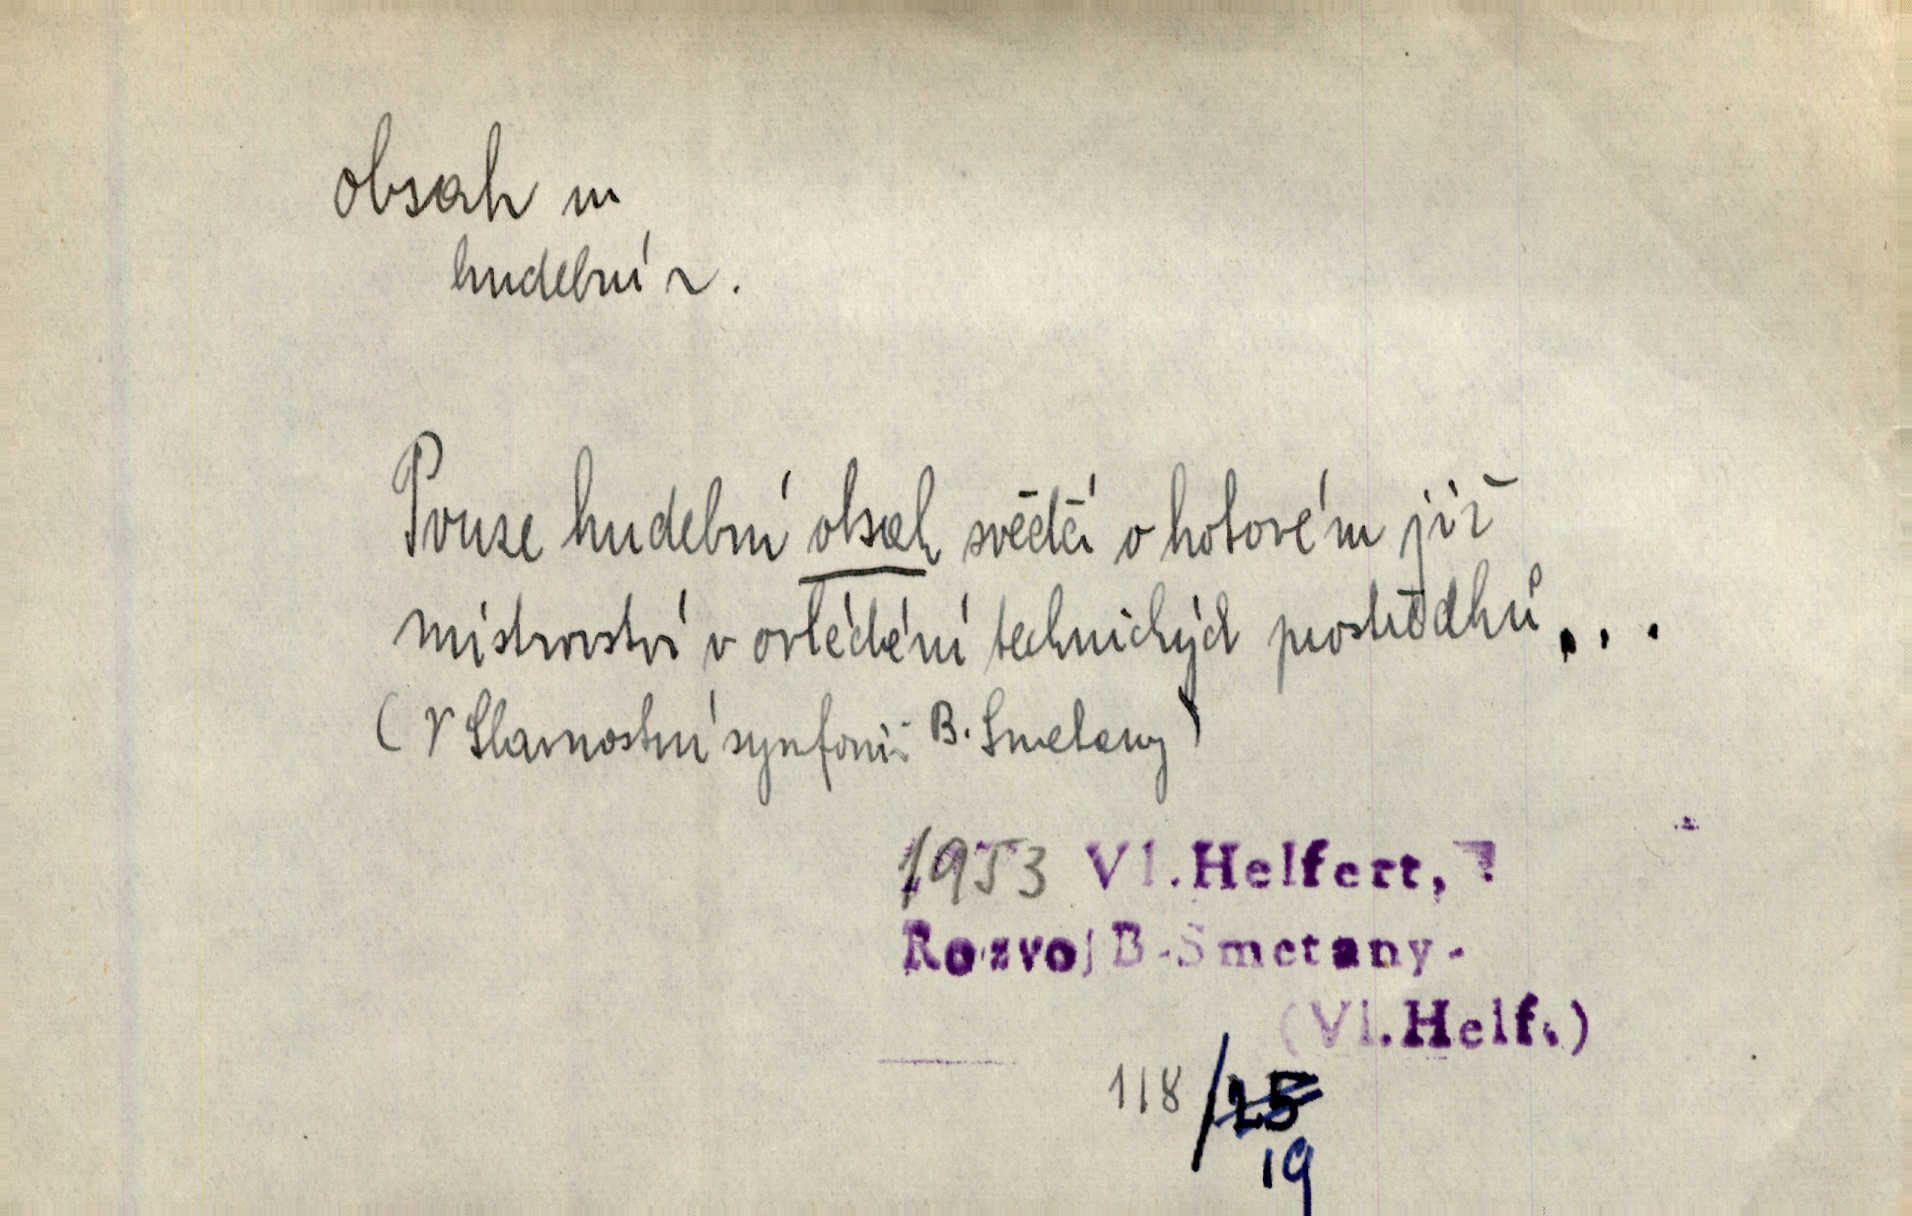 obsah m
hudební ~.
Pouze hudební obsah svědčí o hotovém již
mistrovství v ovládání technických prostředků...
(V Slavnostní synfonii B. Smetany)
1953 Vl. Helfert,
Rozvoj B. Smetany-
(Vl. Helf.)
118/25
19